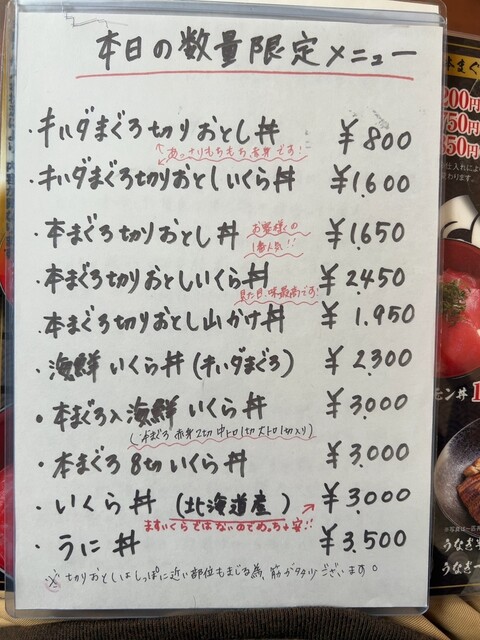 本日の数量限定メニュー
・キハダまぐろ切りおとし丼 ¥800
あっさりもちもち赤身です!
・キハダまぐろ切りおとしいくら丼 ¥1,600
・本まぐろ切りおとし丼 お客様の1番人気!! ¥1,650
・本まぐろ切りおとしいくら丼 ¥2,450
見た目、味最高です!
・本まぐろ切りおとし山かけ丼 ¥1,950
・海鮮いくら丼(キハダまぐろ) ¥2,300
・本まぐろ入海鮮いくら丼 ¥3,000
(本まぐろ赤身2切中トロ1切大トロ1切入り)
・本まぐろ8切いくら丼 ¥3,000
・いくら丼(北海道産) ¥3,000
ますいくらではないのでめっちゃ安!!
・うに丼 ¥3,500
※切りおとしはしっぽに近い部位もまじる為、筋がタタございます。
本まぐ
200円
750円
350円
モン丼 1
うなぎ
うなぎ